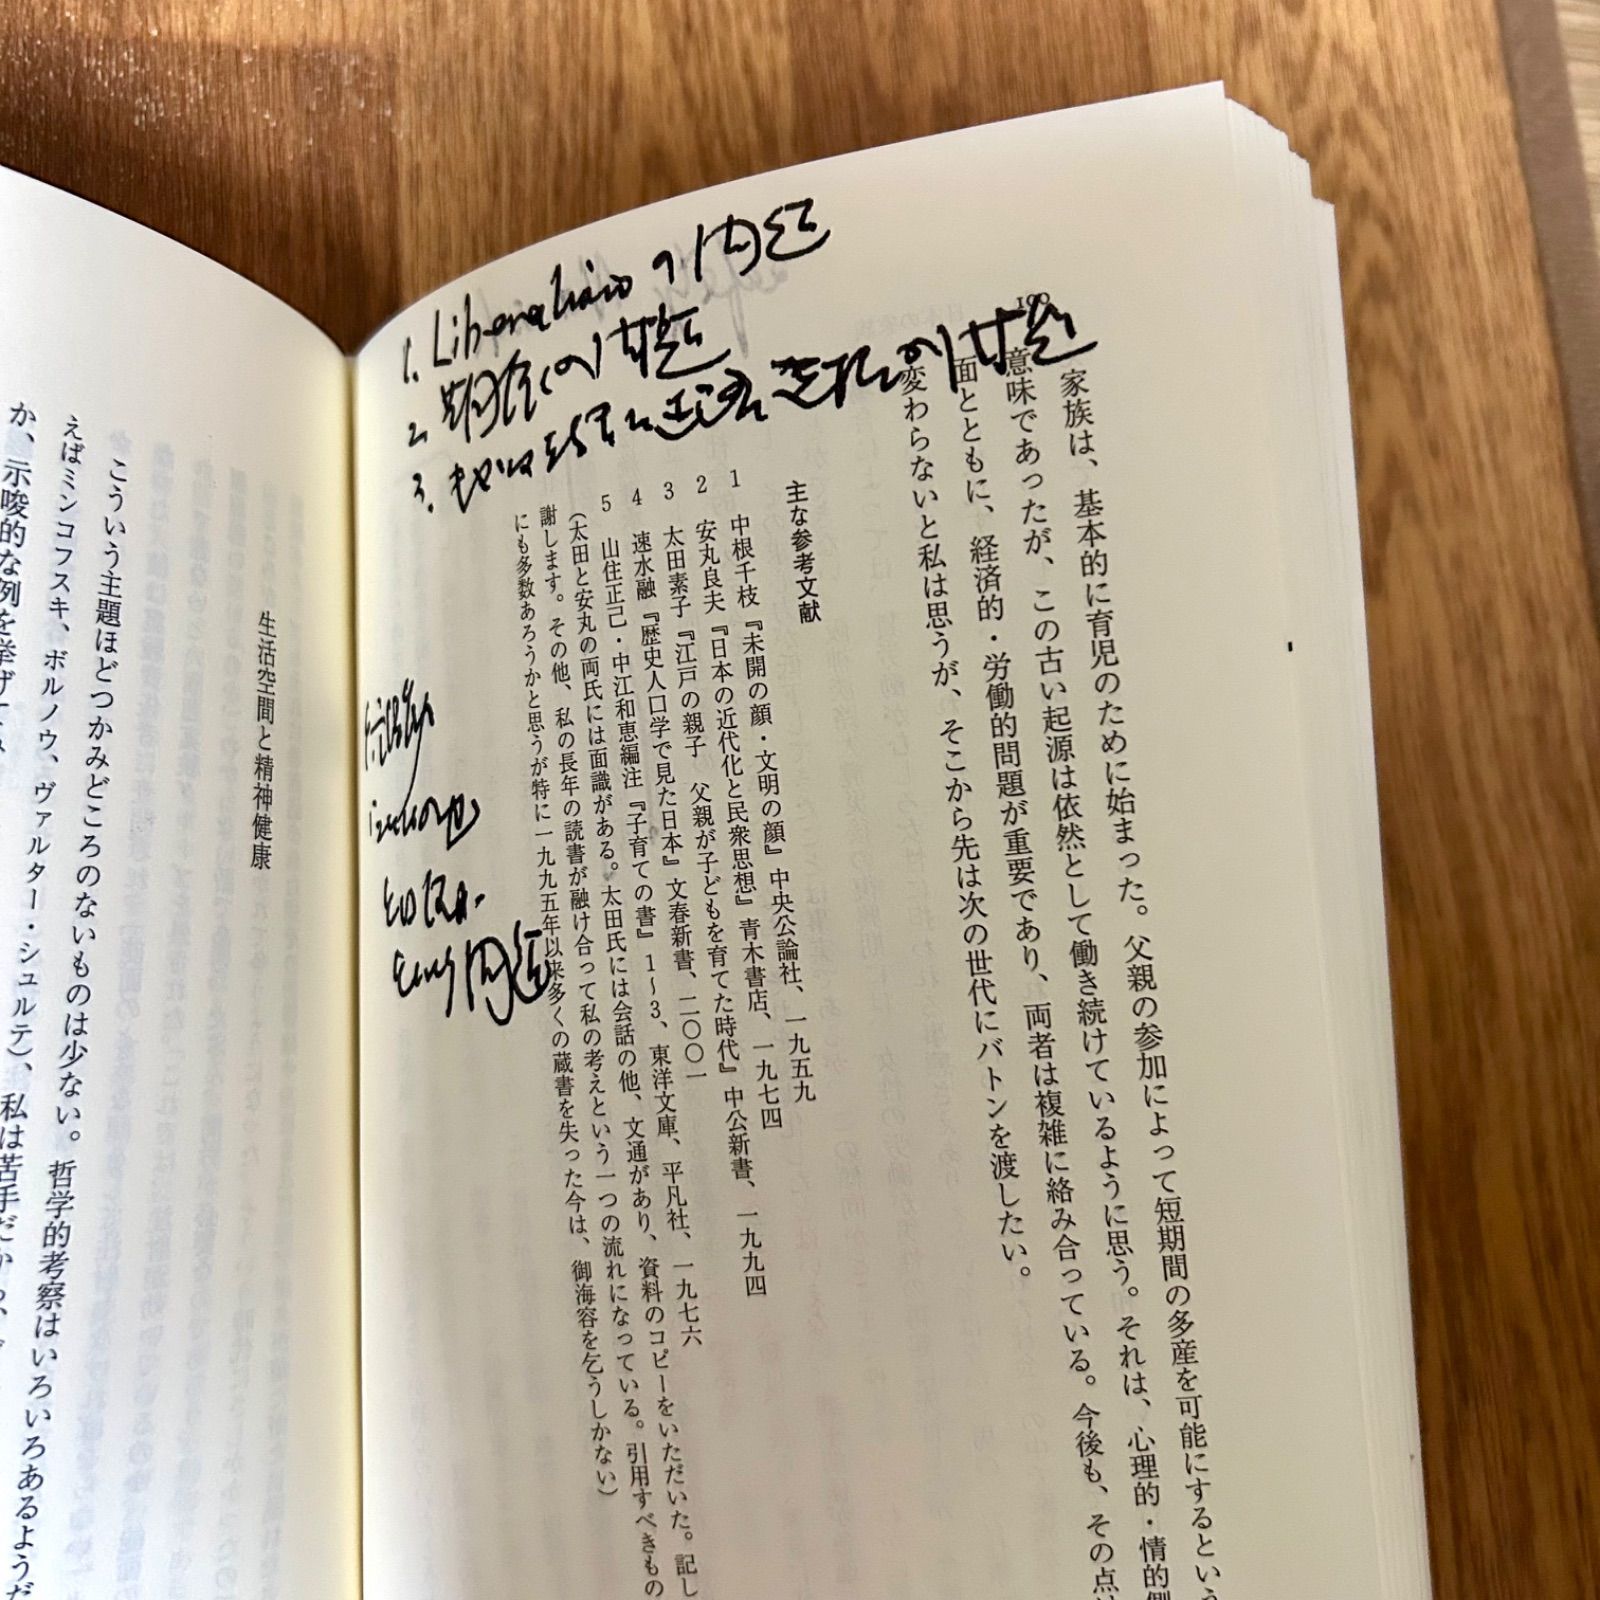 100
家族は、基本的に育児のために始まった。父親の参加によって短期間の多産を可能にするという
意味であったが、この古い起源は依然として働き続けているように思う。それは、心理的・情的側
面とともに、経済的・労働的問題が重要であり、両者は複雑に絡み合っている。今後も、その点は
変わらないと私は思うが、そこから先は次の世代にバトンを渡したい。
主な参考文献
1 中根千枝『未開の顔・文明の顔』中央公論社、一九五九
2 安丸良夫『日本の近代化と民衆思想』青木書店、一九七四
3 太田素子『江戸の親子 父親が子どもを育てた時代』中公新書、一九九四
4 速水融『歴史人口学で見た日本』文春新書、二〇〇一
5 山住正己・中江和恵編注『子育ての書』1〜3、東洋文庫、平凡社、一九七六
(太田と安丸の両氏には面識がある。太田氏には会話の他、文通があり、資料のコピーをいただいた。記し
謝します。その他、私の長年の読書が融け合って私の考えという一つの流れになっている。引用すべきもの
にも多数あろうかと思うが特に一九九五年以来多くの蔵書を失った今は、御海容を乞うしかない)
1.
2.
3.
生活空間と精神健康
こういう主題ほどつかみどころのないものは少ない。哲学的考察はいろいろあるようだ
えばミンコフスキ、ボルノウ、ヴァルター・シュルテ)、私は苦手だから、
か、示唆的な例を挙げ